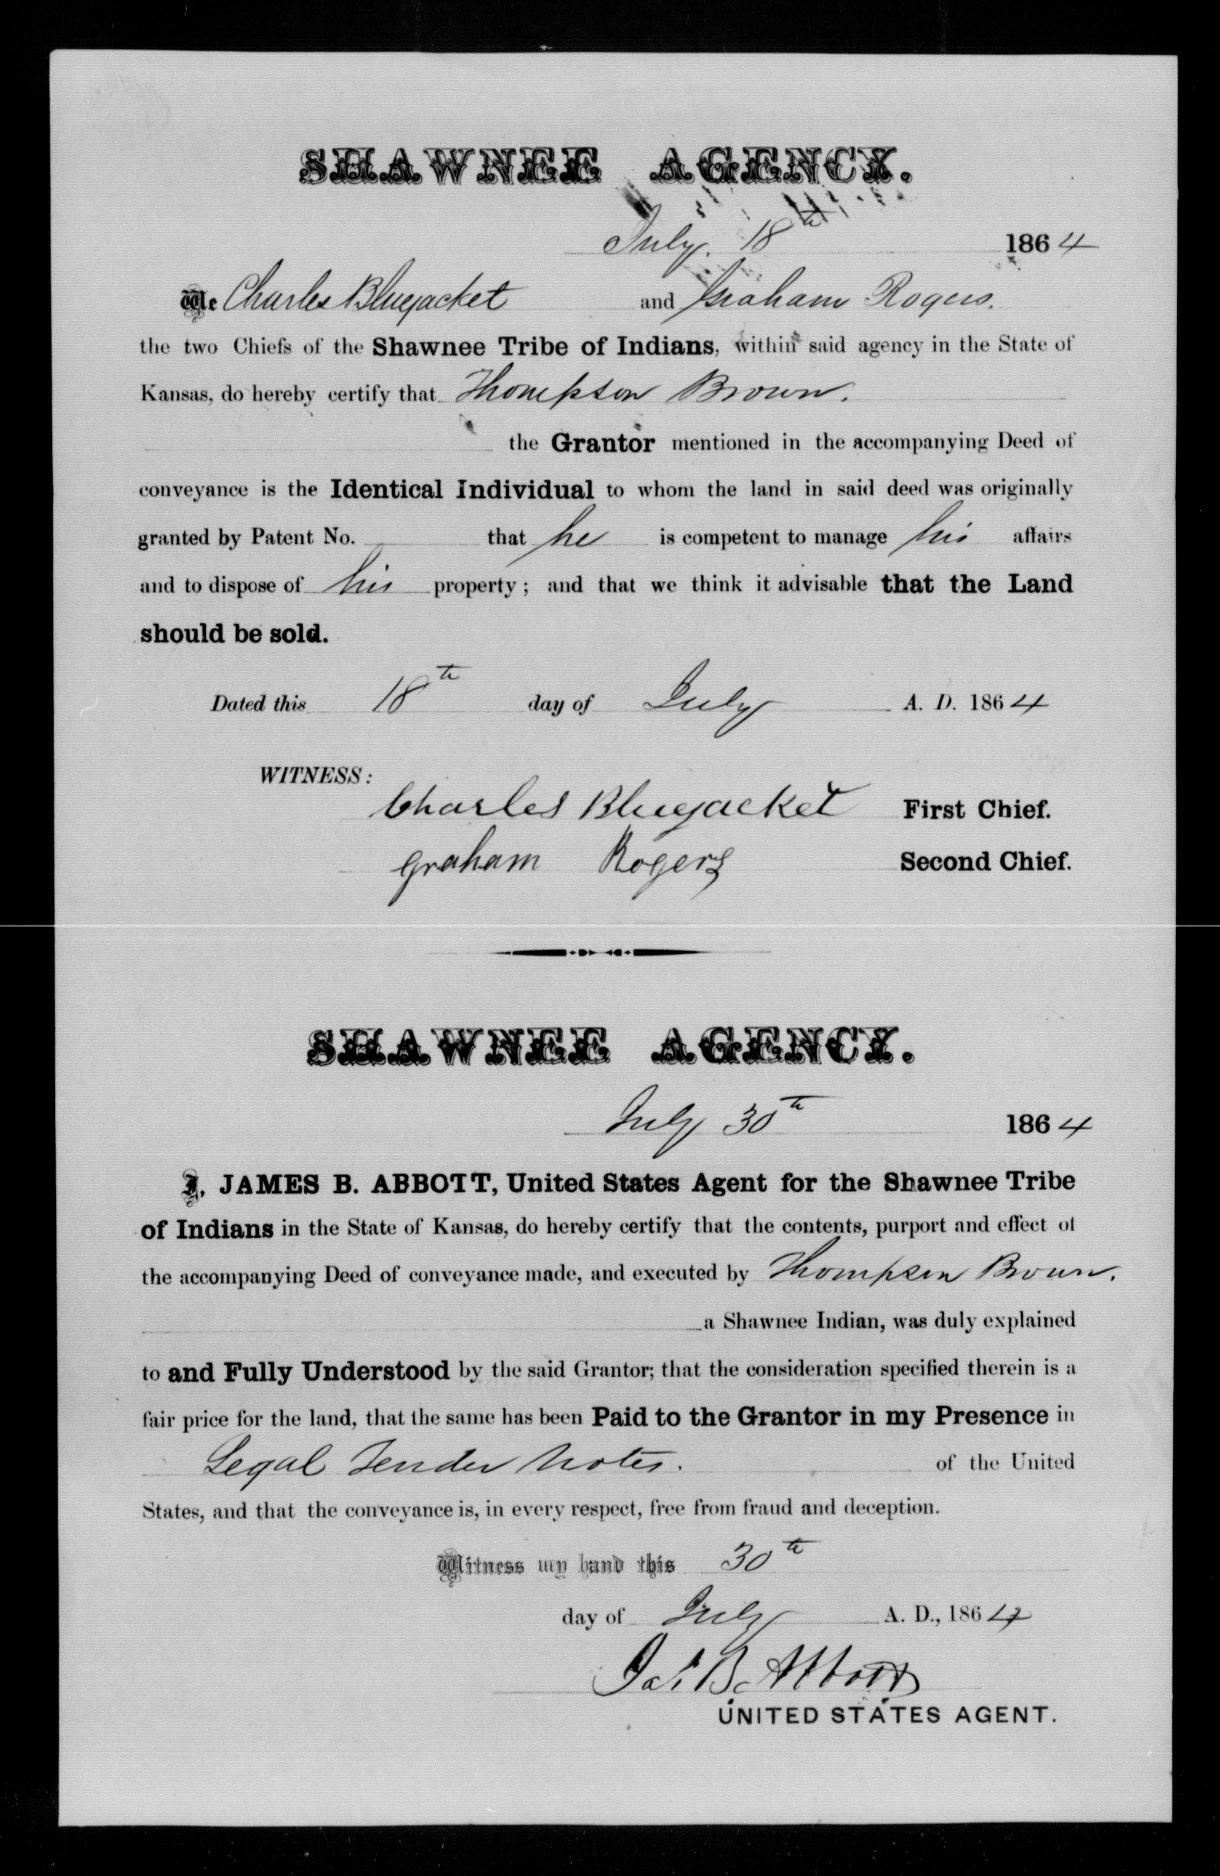 SHAWNEE AGENCY.
July. 18th 1864
We Charles Bluejacket and Graham Rogers.
the two Chiefs of the Shawnee Tribe of Indians, within said agency in the State of
Kansas, do hereby certify that Thompson Brown.
the Grantor mentioned in the accompanying Deed of
conveyance is the Identical Individual to whom the land in said deed was originally
granted by Patent No. that he is competent to manage his affairs
and to dispose of his property; and that we think it advisable that the Land
should be sold.
Dated this 18th day of July A. D. 1864
WITNESS:
Charles Bluejacket First Chief.
Graham Rogers Second Chief.
SHAWNEE AGENCY.
July 30th 1864
I, JAMES B. ABBOTT, United States Agent for the Shawnee Tribe
of Indians in the State of Kansas, do hereby certify that the contents, purport and effect of
the accompanying Deed of conveyance made, and executed by Thompson Brown.
a Shawnee Indian, was duly explained
to and Fully Understood by the said Grantor; that the consideration specified therein is a
fair price for the land, that the same has been Paid to the Grantor in my Presence in
Legal Tender Notes. of the United
States, and that the conveyance is, in every respect, free from fraud and deception.
Witness my hand this 30th
day of July A. D., 1864
Jas. B. Abbott
UNITED STATES AGENT.